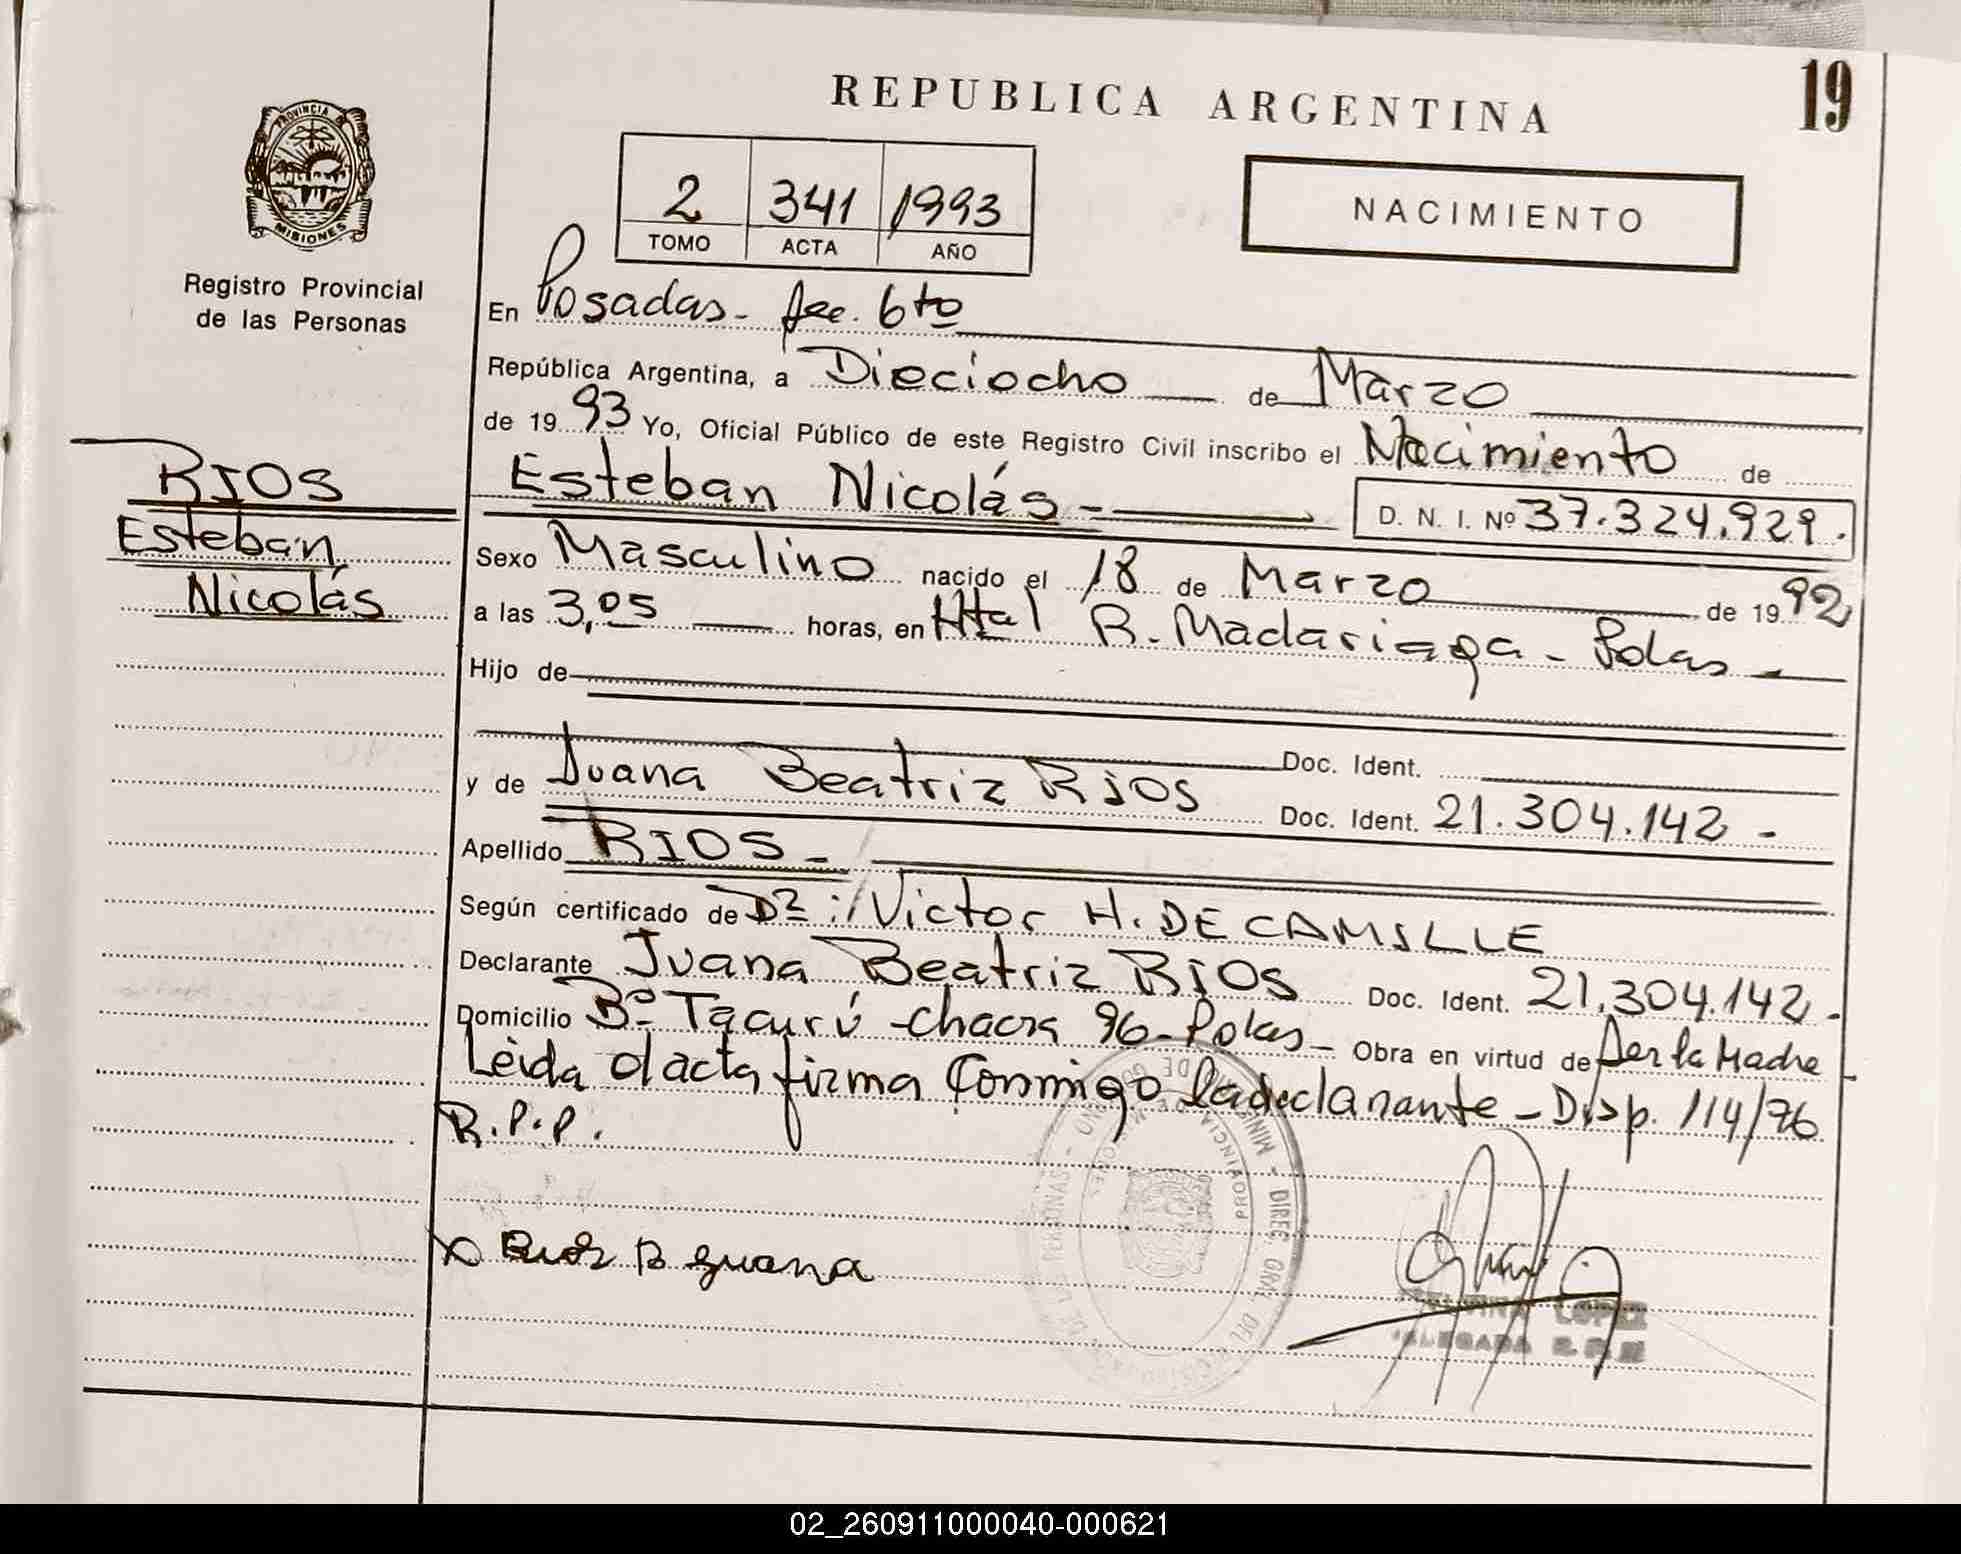 REPUBLICA ARGENTINA
19
PROVINCIA DE
MISIONES
Registro Provincial
de las Personas
2 341 1993
TOMO ACTA AÑO
NACIMIENTO
En Posadas - Secc. 6to
República Argentina, a Dieciocho de Marzo
de 1993 Yo, Oficial Público de este Registro Civil inscribo el Nacimiento de
RIOS
Esteban
Nicolás
Esteban Nicolás - D. N. I. Nº 37.324.929.
Sexo Masculino nacido el 18 de Marzo de 1992
a las 3,05 horas, en Htal R. Madariaga - Pdas -
Hijo de
Doc. Ident.
y de Juana Beatriz RIOS Doc. Ident. 21.304.142 -
Apellido RIOS -
Según certificado de Víctor H. DE CAMILLE
Declarante Juana Beatriz RIOS Doc. Ident. 21.304.142 -
Domicilio Bº Tacurú - chacra 96 - Pdas - Obra en virtud de Ser la Madre
Leída el acta firma conmigo la declarante - Disp. 114/76
R.P.P.
B Juana
LOPEZ
DELEGADA R.P.P.
02_260911000040-000621